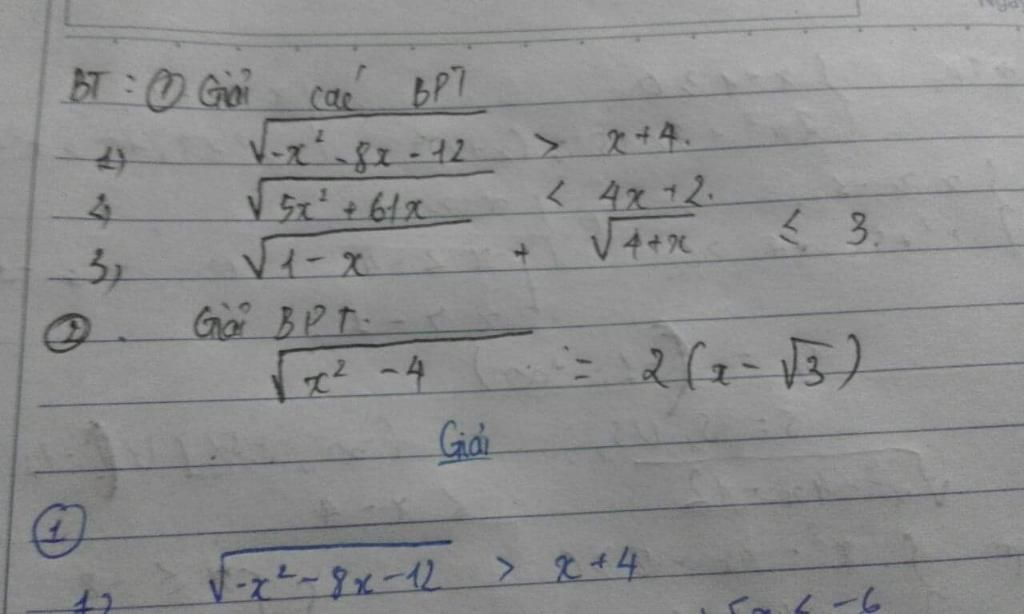 BT: ① Giải các BPT
1) √(-x² - 8x - 12) > x + 4.
2, √(5x² + 61x) < 4x + 2.
3, √(1 - x) + √(4 + x) ≤ 3.
② . Giải BPT.
√(x² - 4) = 2(x - √3)
Giải
①
1) √(-x² - 8x - 12) > x + 4